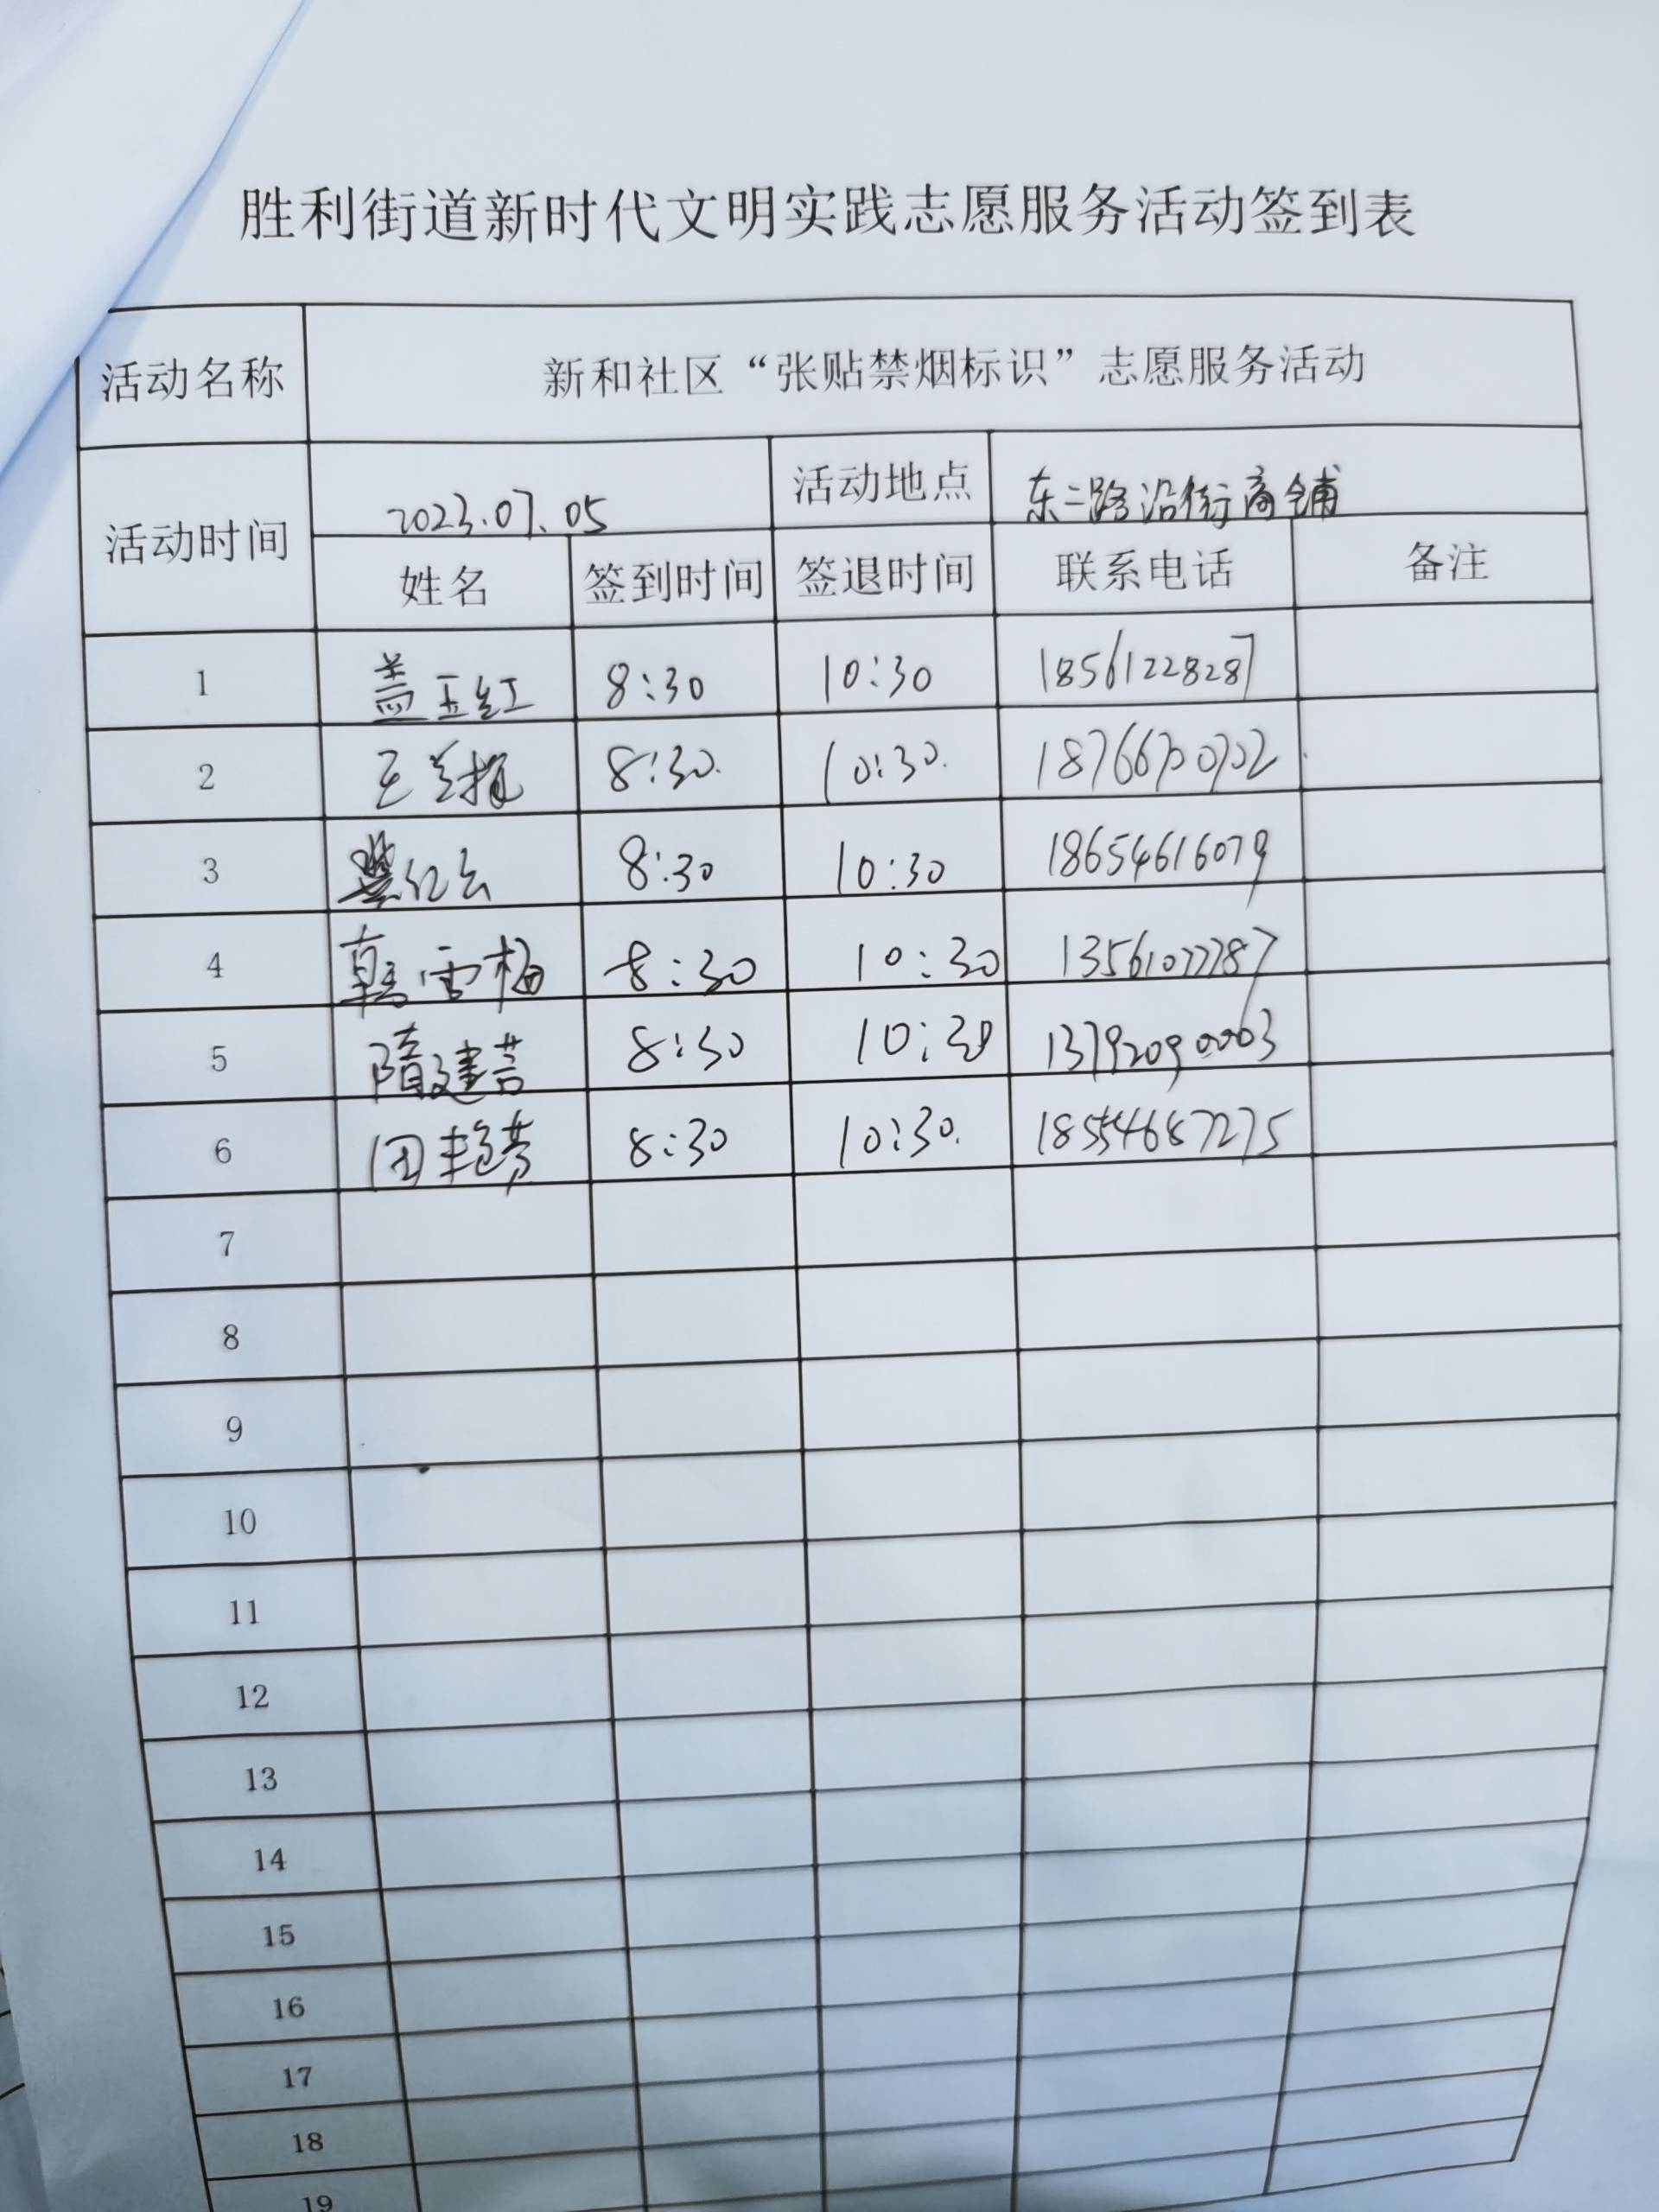 胜利街道新时代文明实践志愿服务活动签到表
活动名称 新和社区“张贴禁烟标识”志愿服务活动
活动时间 2023.07.05 活动地点 东二路沿街商铺
姓名 签到时间 签退时间 联系电话 备注
1 盖玉红 8:30 10:30 18561228287
2 王 8:30. 10:30. 18766700702
3 红云 8:30 10:30 18654616079
4 韩雪梅 8:30 10:30 13561077787
5 隋建芸 8:30 10:30 13792090063
6 田艳芳 8:30 10:30. 18554687275
7
8
9
10
11
12
13
14
15
16
17
18
19